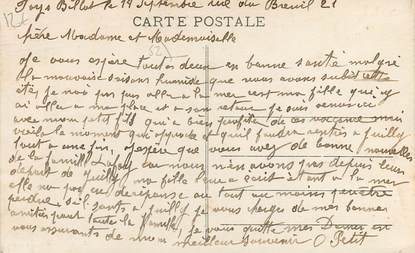 Fays Billot le 19 Septembre rue du Breuil 21
CARTE POSTALE
Chère Madame et Mademoiselle
Je vous espère toutes deux en bonne santé malgré
la mauvaise saison humide que nous avons subit cette
été je nai pas pus aller a la mer cest ma fille qui y
ai allée a ma place et a son retour je suis
avec mon petit fils qui a bien profité de ces vacances mais
voila le moment qui approche et quil faudra rentrés a
tout a une fin, jespère que vous avez de bonne nouvelles
de la famille car nous nen avons pas depuis leur
départ de ma fille leur a écrit étant a la mer
elle na pas eu de réponse au tout au moins
perdue, sil sont a je vous charge de mes bonne
amitiés pour toute la famille je vous quitte mes Dames en
vous assurants de mon meilleur souvenir O Petit